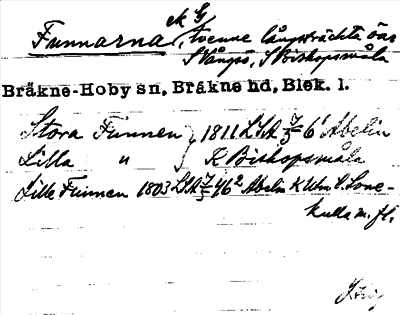 N G
Funnarna, tvenne långsträckta öar
S Vångsö, S Bishopsmåla
Bräkne-Hoby sn, Bräkne hd, Blek. l.
Stora Funnen } 1811 LSA 7/3-6¹ Abelin
Lilla " } K Bishopsmåla
Lille Funnen 1803 LSA 7/5 46² Abelin K Utm t. Sone-
kulla m. fl.